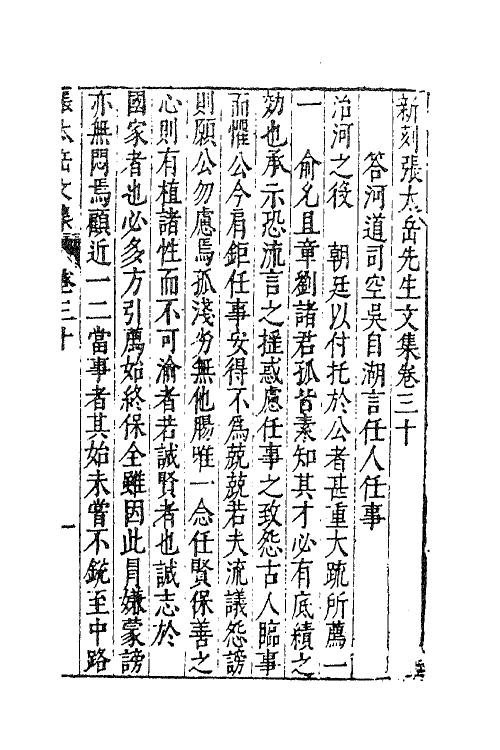 新刻張太岳先生文集卷三十
答河道司空吳自湖言任人任事
治河之後　朝廷以付托於公者甚重大疏所薦一
一　俞允且章劉諸君孤皆素知其才必有底績之
効也承示恐流言之搖惑慮任事之致怨古人臨事
而懼公今肩鉅任事安得不爲兢兢若夫流議怨謗
則願公勿慮焉孤淺劣無他腸唯一念任賢保善之
心則有植諸性而不可渝者若誠賢者也誠志於
國家者也必多方引薦始終保全雖因此冐嫌蒙謗
亦無悶焉顧近一二當事者其始未嘗不銳至中路
張太岳文集 卷三十 一